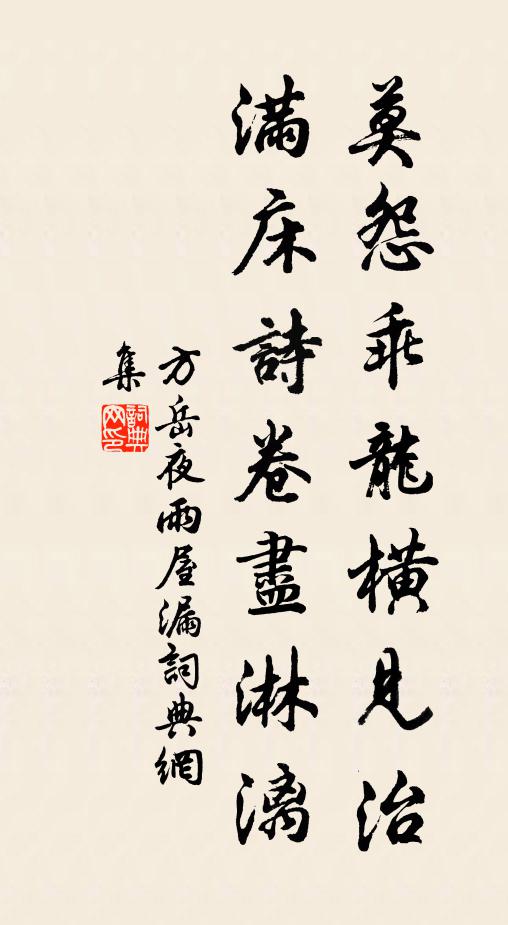 莫怨乖龍橫見治
滿床詩卷盡淋漓
方岳夜雨屋漏詞典網
集
詞典
网印